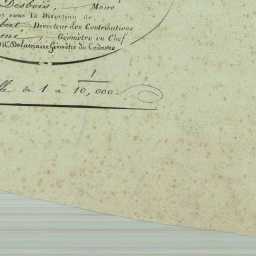 Desbois, Maire
sous la Direction de
Directeur des Contributions
Géomètre en Chef
Delamaire Géomètre du Cadastre
de 1 à 10,000